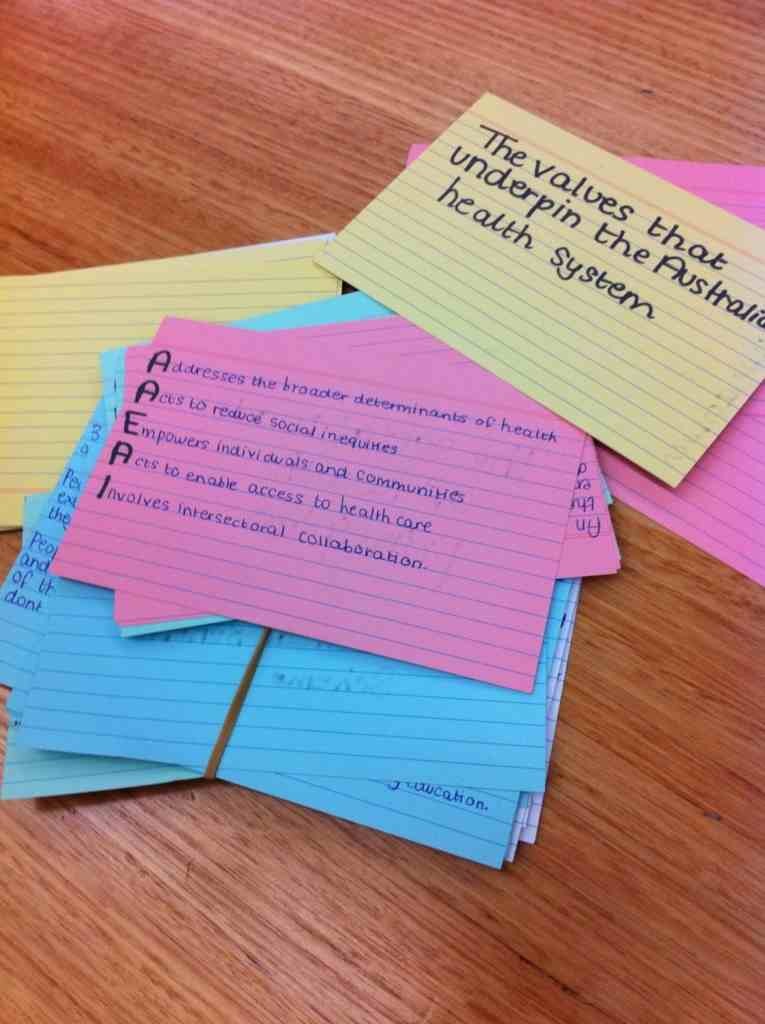 The values that
underpin the Australia
health system
Addresses the broader determinants of health
Acts to reduce social inequities
Empowers individuals and communities
Acts to enable access to health care
Involves intersectoral collaboration.
3
Peo
and
of th
dont
An